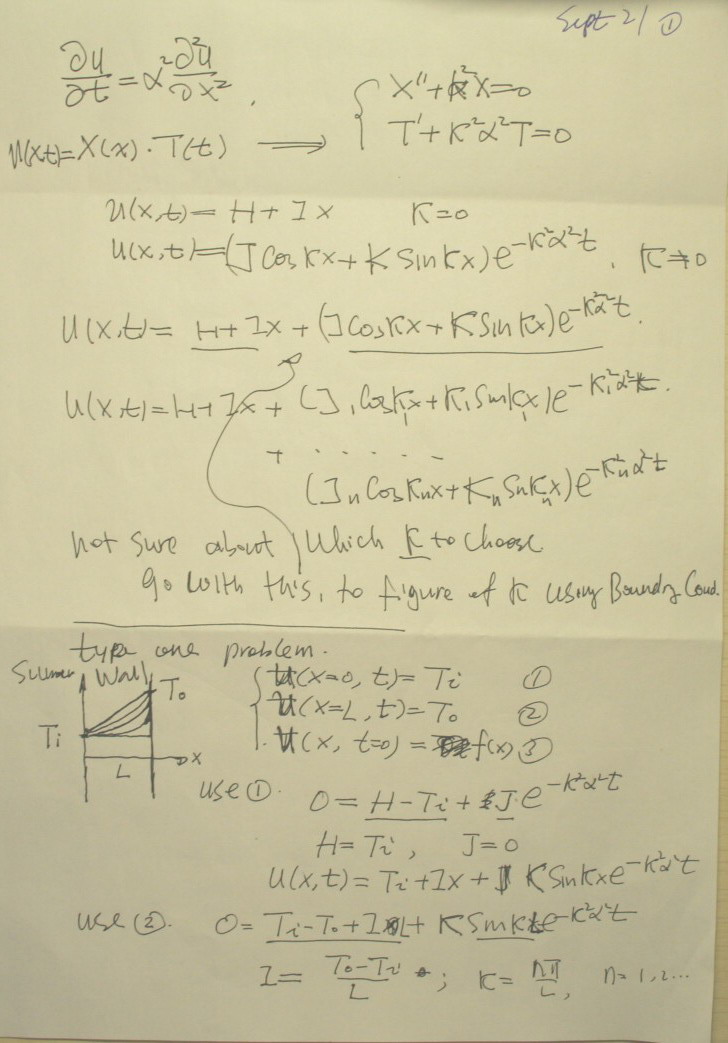 Sept 21 ①
∂u/∂t = α² ∂²u/∂x² , X'' + k²X = 0
u(x,t) = X(x) · T(t) ⟶ T' + K²α²T = 0
u(x,t) = H + Ix K = 0
u(x,t) = (J cos Kx + K sin Kx) e^{-K²α²t} , K ≠ 0
u(x,t) = H + Ix + (J cos Kx + K sin Kx) e^{-K²α²t} .
u(x,t) = H + Ix + (J₁ cos K₁x + K₁ sin K₁x) e^{-K₁²α²t} .
+ . . . . . -
(Jₙ cos Kₙx + Kₙ sin Kₙx) e^{-Kₙ²α²t}
not sure about which K to choose
go with this, to figure of K using Boundry Cond.
type one problem.
Summer Wall
u(x=0, t) = Ti ①
T₀
u(x=L, t) = T₀ ②
Ti
u(x, t=0) = f(x) ③
L x
use ① . 0 = H - Ti + J e^{-K²α²t}
H = Ti , J = 0
u(x,t) = Ti + Ix + K sin Kx e^{-K²α²t}
use ② . 0 = Ti - T₀ + IL + K sin KL e^{-K²α²t}
I = (T₀ - Ti)/L ; K = nπ/L , n = 1, 2 ...